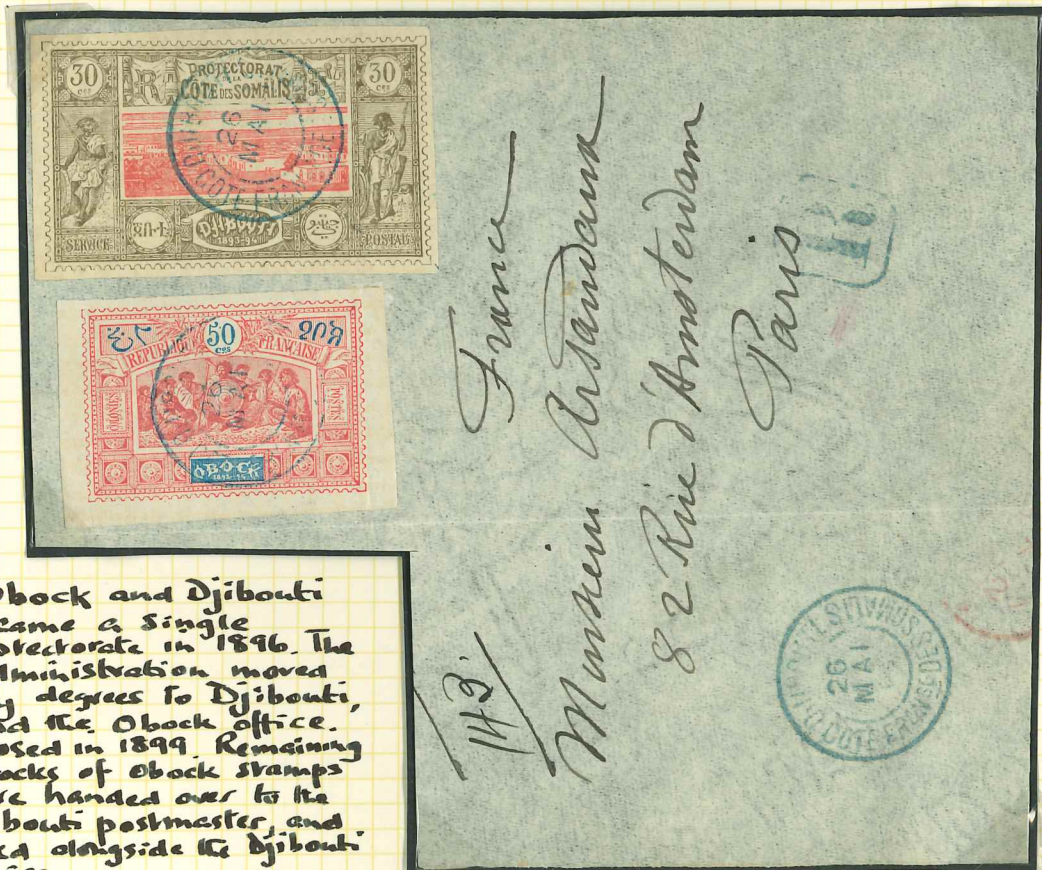 30
Cᵉˢ
PROTECTORAT
DE LA
CÔTE DES SOMALIS
30
Cᵉˢ
SERVICE
DJIBOUTI
1893-94
POSTAL
26
MAI
50
Cᵉˢ
REPUBLIQUE
FRANÇAISE
COLONIES
POSTES
OBOCK
1893-94
26
MAI
R
France
Monsieur Arsandaux
82 Rue d'Amsterdam
Paris
143
DJIBOUTI
CÔTE FRANÇSE DES SOMALIS
26
MAI
Obock and Djibouti
became a single
protectorate in 1896. The
administration moved
by degrees to Djibouti,
and the Obock office
closed in 1899. Remaining
stocks of Obock stamps
were handed over to the
Djibouti postmaster, and
used alongside the Djibouti